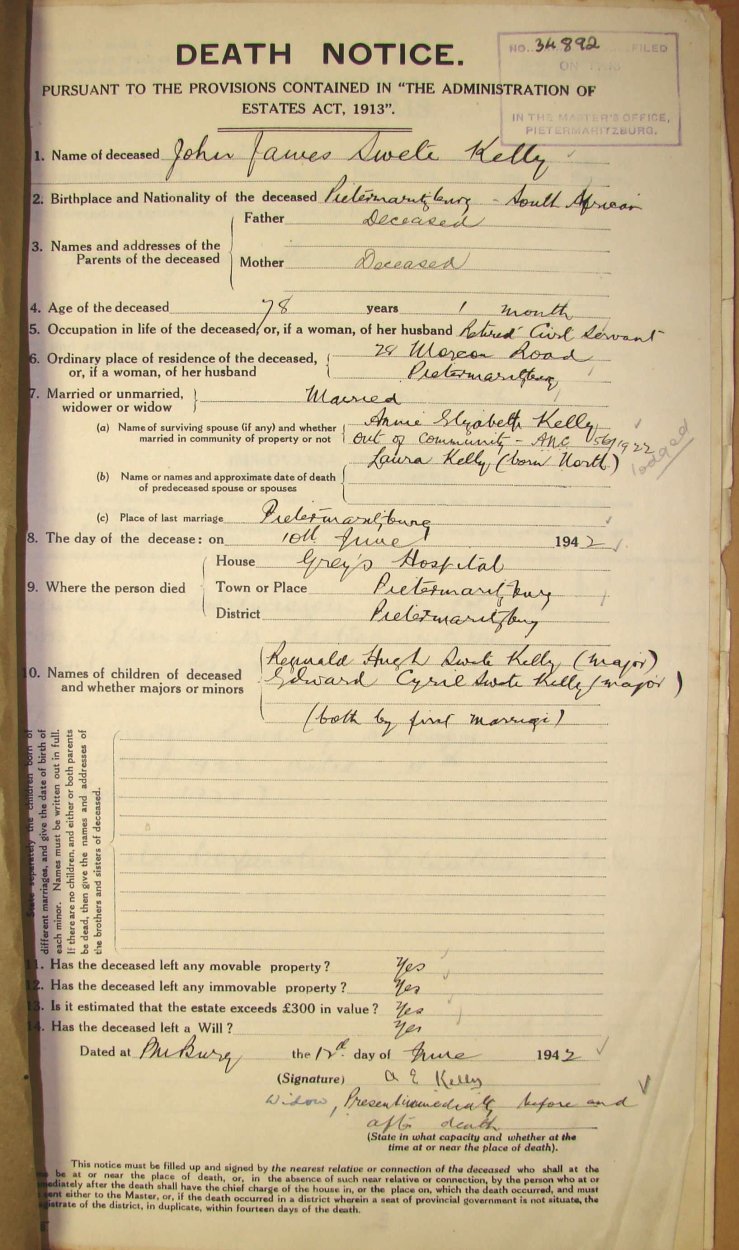 DEATH NOTICE.
NO. 34892 FILED
ON
IN THE MASTER'S OFFICE,
PIETERMARITZBURG.
PURSUANT TO THE PROVISIONS CONTAINED IN "THE ADMINISTRATION OF
ESTATES ACT, 1913".
1. Name of deceased John James Swete Kelly
2. Birthplace and Nationality of the deceased Pietermaritzburg - South African
3. Names and addresses of the Parents of the deceased
Father Deceased
Mother Deceased
4. Age of the deceased 78 years 1 month
5. Occupation in life of the deceased, or, if a woman, of her husband Retired Civil Servant
6. Ordinary place of residence of the deceased, 28 Road
or, if a woman, of her husband Pietermaritzburg
7. Married or unmarried, widower or widow Married
(a) Name of surviving spouse (if any) and whether Annie Elizabeth Kelly
married in community of property or not out of community - ANC 56/1922
lodged
Laura Kelly (born North)
(b) Name or names and approximate date of death
of predeceased spouse or spouses
(c) Place of last marriage Pietermaritzburg
8. The day of the decease: on 10th June 1942
9. Where the person died
House Grey's Hospital
Town or Place Pietermaritzburg
District Pietermaritzburg
10. Names of children of deceased
and whether majors or minors
Reginald Hugh Swete Kelly (major)
Edward Cyril Swete Kelly (major)
(both by first marriage)
State separately the children born of
different marriages, and give the date of birth of
each minor. Names must be written out in full.
If there are no children, and either or both parents
be dead, then give the names and addresses of
the brothers and sisters of deceased.
11. Has the deceased left any movable property? Yes
12. Has the deceased left any immovable property? Yes
13. Is it estimated that the estate exceeds £300 in value? Yes
14. Has the deceased left a Will? Yes
Dated at PMBurg the 12th day of June 1942
(Signature) A E Kelly
Widow, Present immediately before and
after death
(State in what capacity and whether at the
time at or near the place of death).
This notice must be filled up and signed by the nearest relative or connection of the deceased who shall at the
be at or near the place of death, or, in the absence of such near relative or connection, by the person who at or
immediately after the death shall have the chief charge of the house in, or the place on, which the death occurred, and must
sent either to the Master, or, if the death occurred in a district wherein a seat of provincial government is not situate, the
magistrate of the district, in duplicate, within fourteen days of the death.